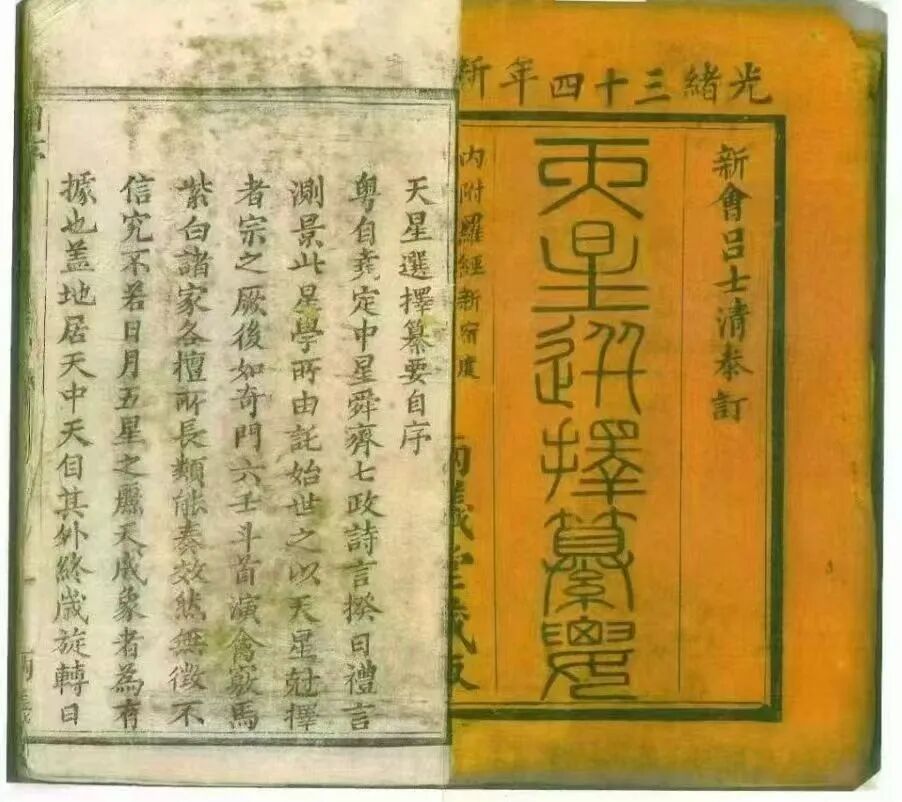 光緒三十四年新
新會呂士清叅訂
天星選擇纂要
內附羅經新宿度
兩儀堂藏板
天星選擇纂要自序
粵自堯定中星舜齊七政詩言揆日禮言
測景此星學所由託始世之以天星尅擇
者宗之厥後如奇門六壬斗首演禽馭馬
紫白諸家各擅所長類能奏效然無徵不
信究不若日月五星之麗天成象者為有
據也盖地居天中天包其外終歲旋轉日